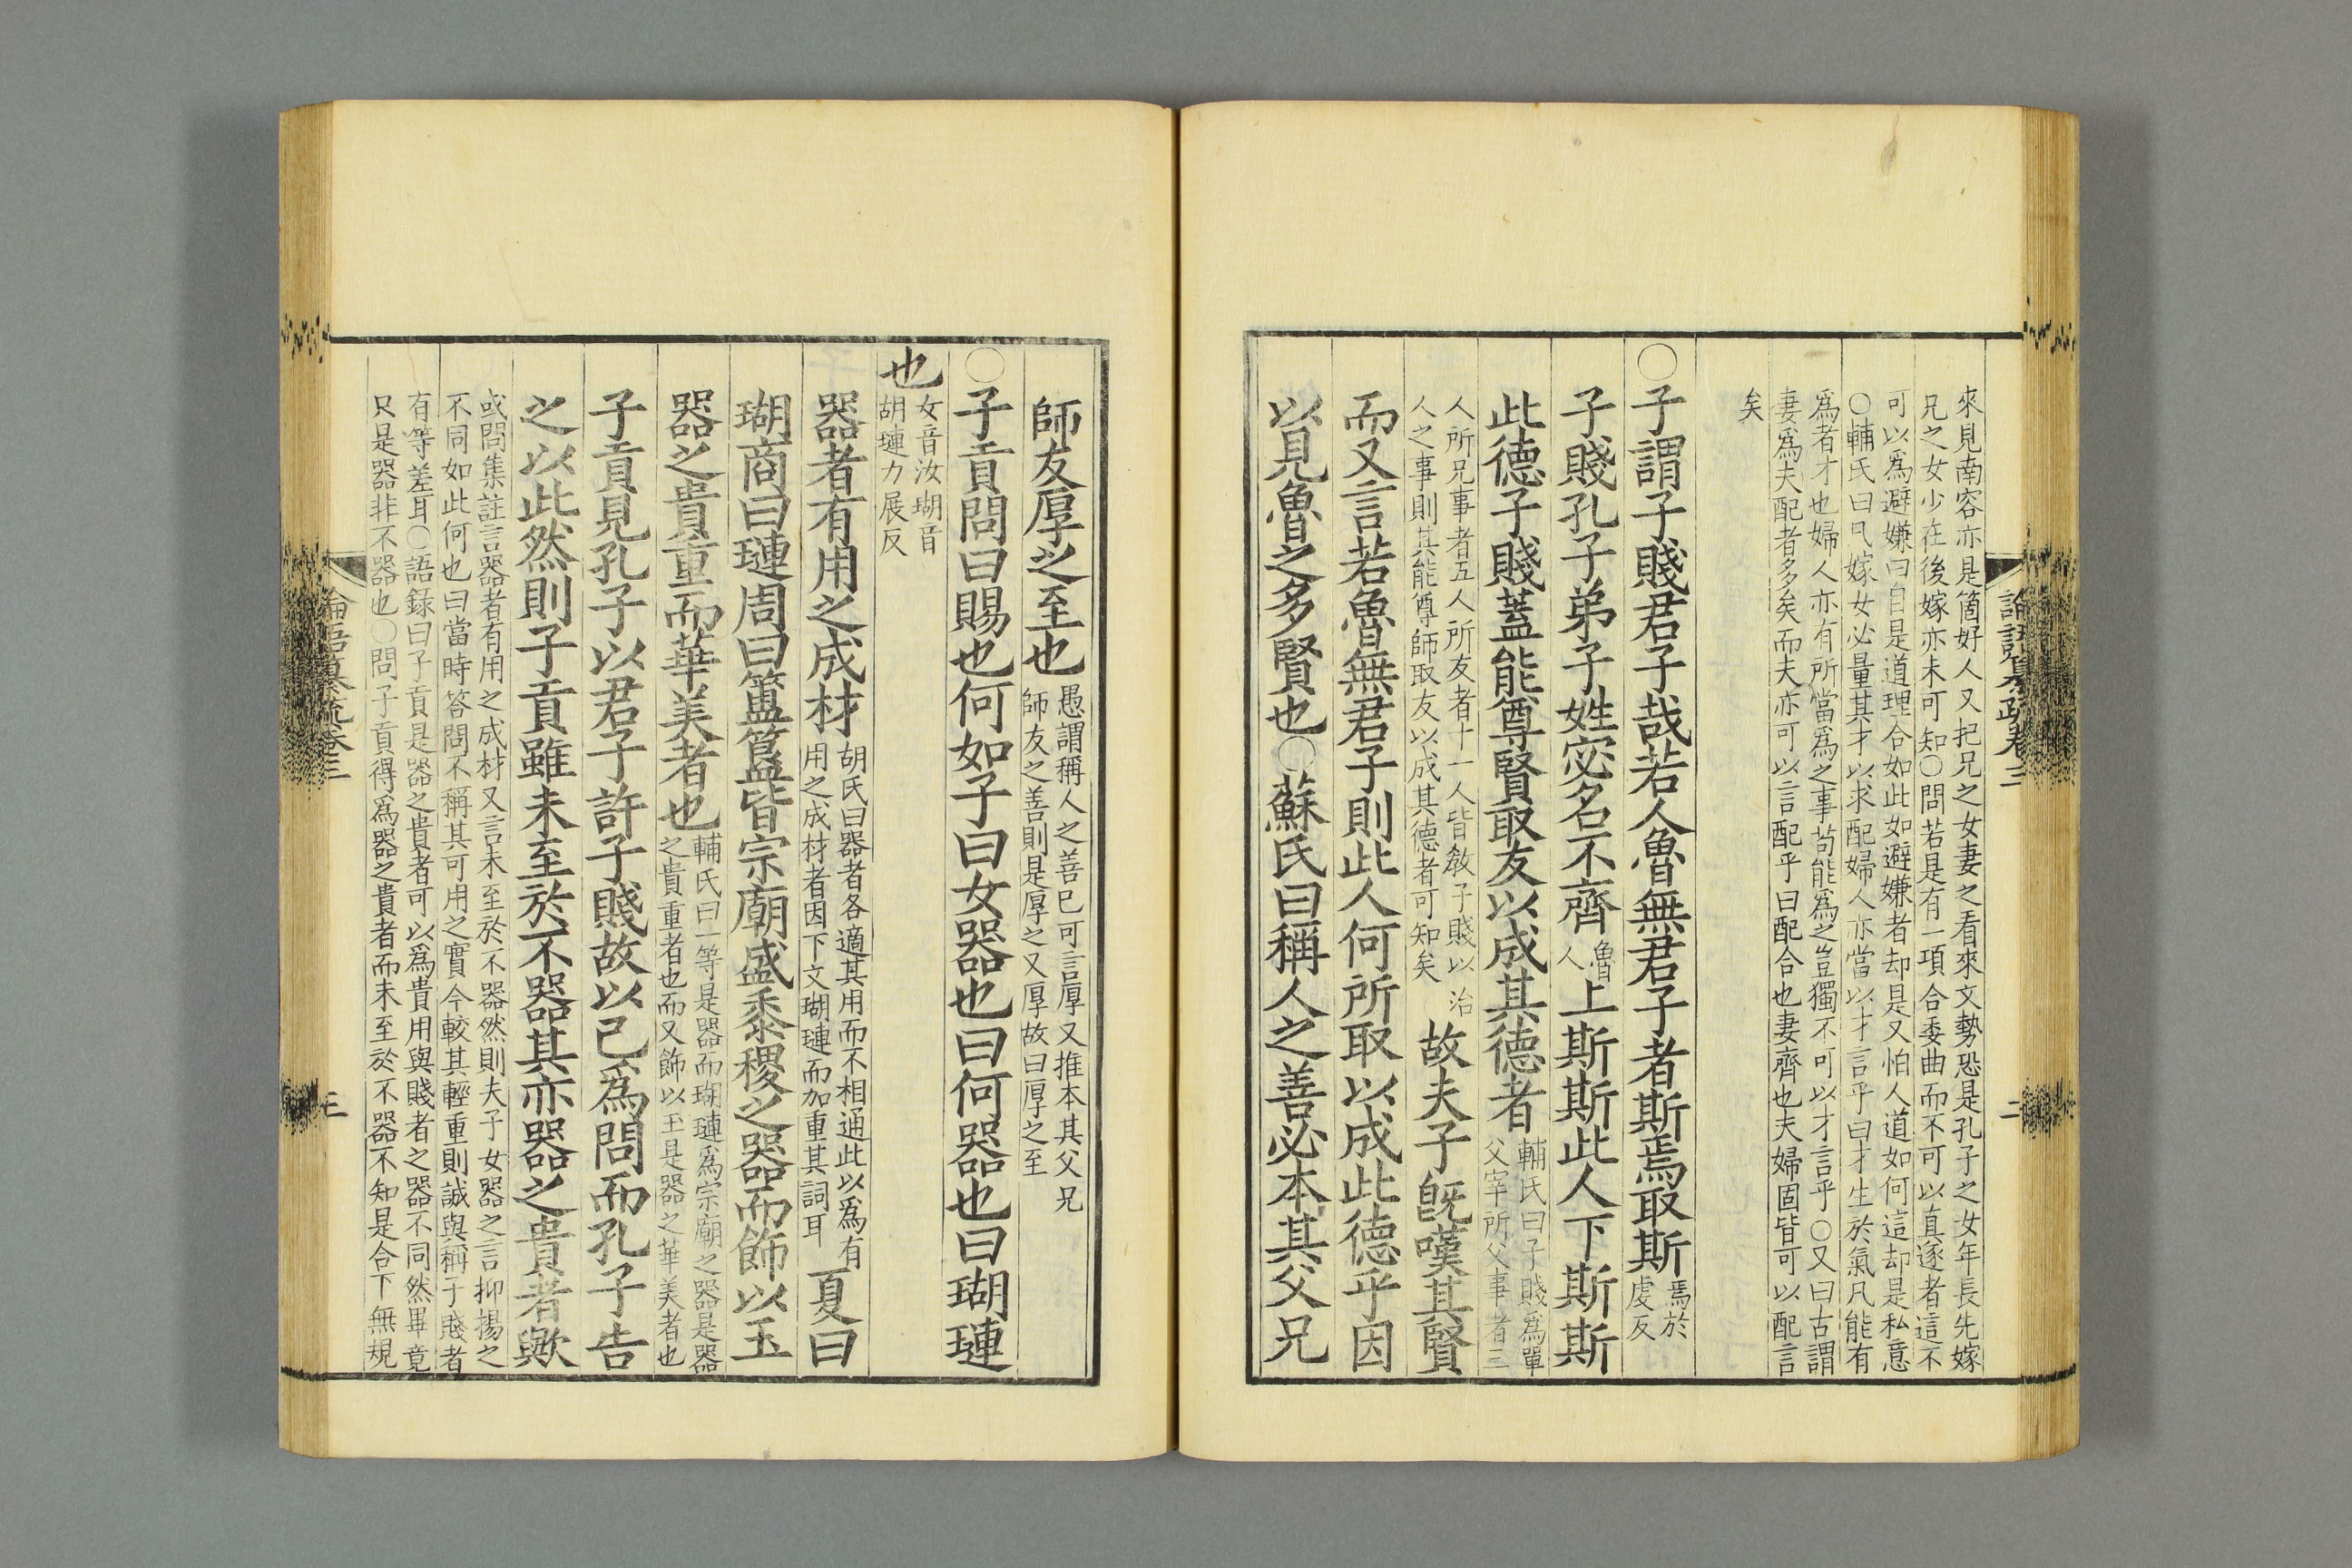 來見南容亦是箇好人又把兄之女妻之看來文勢恐是孔子之女年長先嫁
兄之女少在後嫁亦未可知〇問若是有一項合委曲而不可以直遂者這不
可以爲避嫌曰自是道理合如此如避嫌者却是又怕人道如何這却是私意
〇輔氏曰凡嫁女必量其才以求配婦人亦當以才言乎曰才生於氣凡能有
爲者才也婦人亦有所當爲之事苟能爲之豈獨不可以才言乎〇又曰古謂
妻爲夫配者多矣而夫亦可以言配乎曰配合也妻齊也夫婦固皆可以配言
矣
〇子謂子賤君子哉若人魯無君子者斯焉取斯
焉於
虔反
子賤孔子弟子姓宓名不齊
魯
人
上斯斯此人下斯斯
此德子賤蓋能尊賢取友以成其德者
輔氏曰子賤爲單
父宰所父事者三
人所兄事者五人所友者十一人皆敎子賤以治
人之事則其能尊師取友以成其德者可知矣
故夫子旣嘆其賢
而又言若魯無君子則此人何所取以成此德乎因
以見魯之多賢也〇蘇氏曰稱人之善必本其父兄
論語纂疏卷三
二
師友厚之至也
愚謂稱人之善已可言厚又推本其父兄
師友之善則是厚之又厚故曰厚之至
〇子貢問曰賜也何如子曰女器也曰何器也曰瑚璉
也
女音汝瑚音
胡璉力展反
器者有用之成材
胡氏曰器者各適其用而不相通此以爲有
用之成材者因下文瑚璉而加重其詞耳
夏曰
瑚商曰璉周曰簠簋皆宗廟盛黍稷之器而飾以玉
器之貴重而華美者也
輔氏曰一等是器而瑚璉爲宗廟之器是器
之貴重者也而又飾以玉是器之華美者也
子貢見孔子以君子許子賤故以己爲問而孔子告
之以此然則子貢雖未至於不器其亦器之貴者歟
或問集註言器者有用之成材又言未至於不器然則夫子女器之言抑揚之
不同如此何也曰當時答問不稱其可用之實今較其輕重則誠與稱子賤者
有等差耳〇語錄曰子貢是器之貴者可以爲貴用與賤者之器不同然畢竟
只是器非不器也〇問子貢得爲器之貴者而未至於不器不知是合下無規
論語纂疏卷三
三